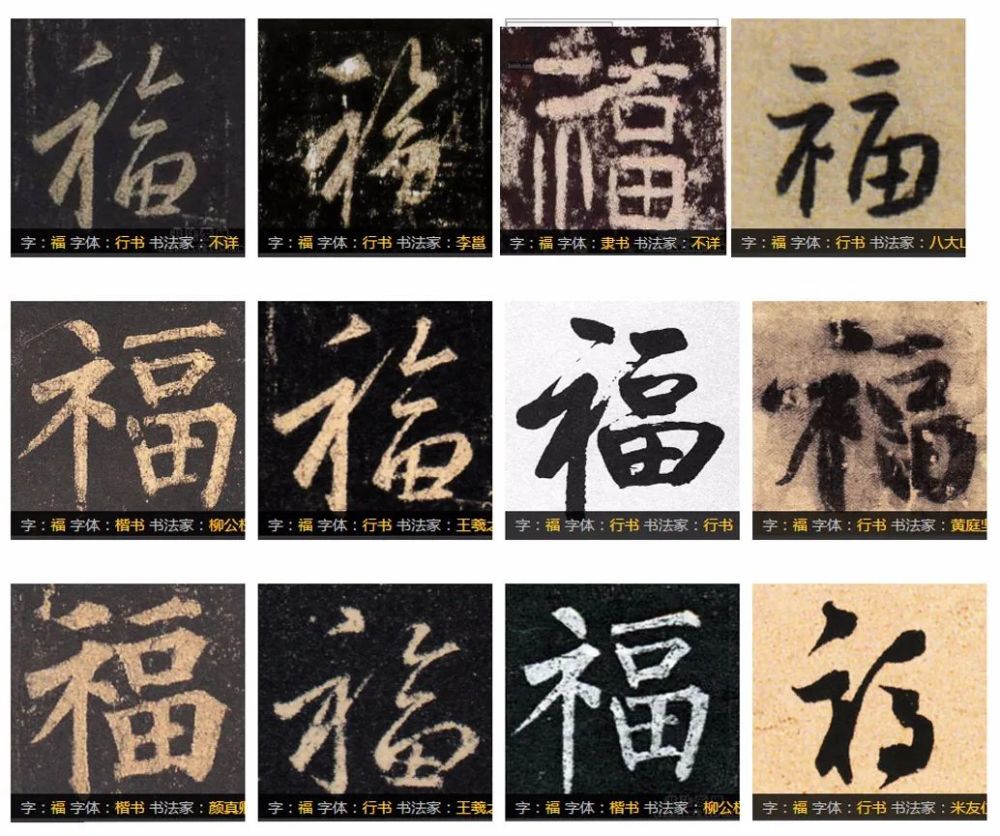 福 福 福 福
字：福 字体：行书 书法家：不详
字：福 字体：行书 书法家：李邕
字：福 字体：隶书 书法家：不详
字：福 字体：行书 书法家：八大山
福 福 福 福
字：福 字体：楷书 书法家：柳公权
字：福 字体：行书 书法家：王羲之
字：福 字体：行书 书法家：行书
字：福 字体：行书 书法家：黄庭坚
福 福 福 福
字：福 字体：楷书 书法家：颜真卿
字：福 字体：行书 书法家：王羲之
字：福 字体：楷书 书法家：柳公权
字：福 字体：行书 书法家：米友仁